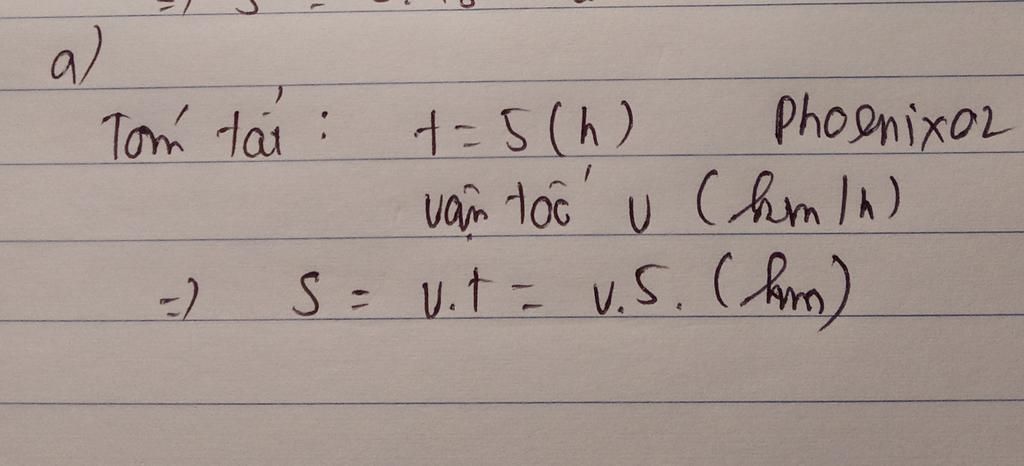 a)
Tóm tắt : t = 5 (h) Phoenix02
vận tốc v (km/h)
=) S = v.t = v.5. (km)